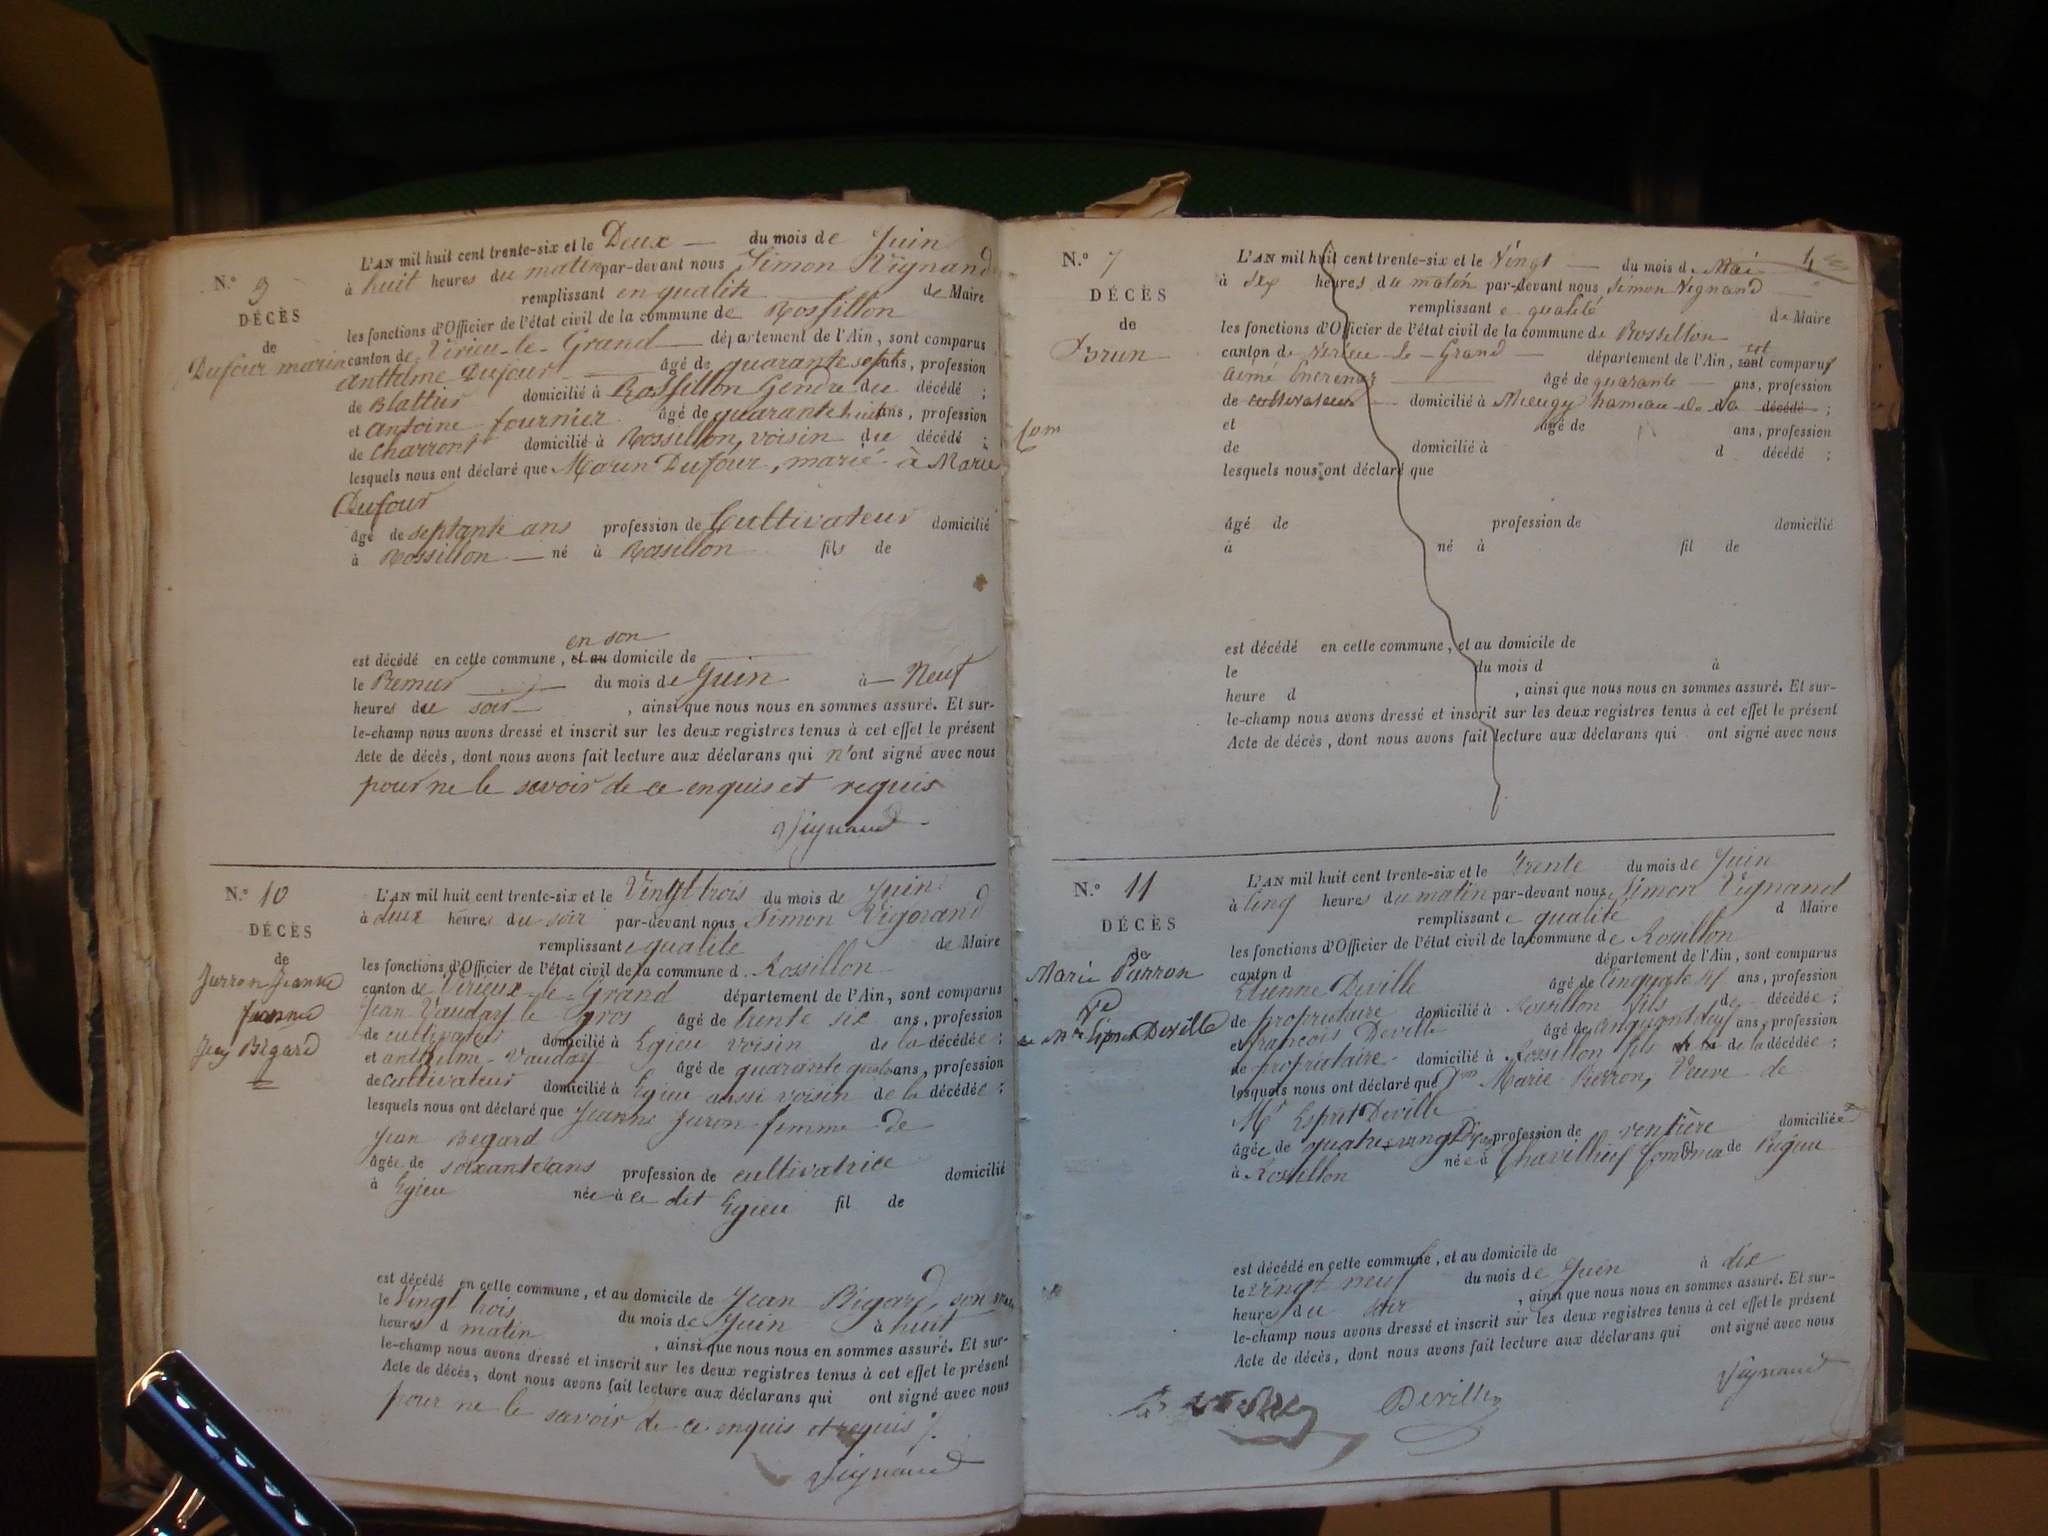 N.° 9
DÉCÈS
de
Dufour marin
L'AN mil huit cent trente-six et le Deux du mois de Juin
à huit heures du matin par-devant nous Simon Vignand
remplissant en qualité de Maire
les fonctions d'Officier de l'état civil de la commune de Rossillon
canton de Virieu-le-Grand département de l'Ain, sont comparus
Anthelme Dufour âgé de quarante sept ans, profession
de domicilié à Rossillon Gendre du décédé ;
et antoine fournier âgé de quarante huit ans, profession
de Charront domicilié à Rossillon, voisin du décédé ;
lesquels nous ont déclaré que Marin Dufour, marié à Marie
Dufour
âgé de septante ans profession de Cultivateur domicilié
à Rossillon né à Rossillon fils de
en son
est décédé en cette commune, et au domicile de
le Premier du mois de Juin à Neuf
heures du soir, ainsi que nous nous en sommes assuré. Et sur-
le-champ nous avons dressé et inscrit sur les deux registres tenus à cet effet le présent
Acte de décès, dont nous avons fait lecture aux déclarans qui n'ont signé avec nous
pour ne le savoir de ce enquis et requis
Vignand
N.° 10
DÉCÈS
de
Jurron Jeanne
Jeanne
Bégard
L'AN mil huit cent trente-six et le Vingt trois du mois de Juin
à deux heures du soir par-devant nous Simon Vignand
remplissant e qualité de Maire
les fonctions d'Officier de l'état civil de la commune d. Rossillon
canton de Virieux-le-Grand département de l'Ain, sont comparus
Jean Vauday le gros âgé de trente six ans, profession
de cultivateur domicilié à Egieu voisin de la décédée ;
et anthelme Vauday âgé de quarante quatre ans, profession
de cultivateur domicilié à Egieu aussi voisin de la décédée ;
lesquels nous ont déclaré que Jeanne Juron femme de
Jean Begard
âgée de soixante ans profession de cultivatrice domicilié
à Egieu née à ce dit Egieu fil de
est décédé en cette commune, et au domicile de Jean Bégard, son
le Vingt trois du mois de Juin à huit
heures d matin, ainsi que nous nous en sommes assuré. Et sur-
le-champ nous avons dressé et inscrit sur les deux registres tenus à cet effet le présent
Acte de décès, dont nous avons fait lecture aux déclarans qui ont signé avec nous
pour ne le savoir de ce enquis et requis
Vignand
N.° 7
DÉCÈS
de
Brun
L'AN mil huit cent trente-six et le Vingt du mois d. Mai 4
à dix heures du matin par-devant nous Simon Vignand
remplissant e qualité de Maire
les fonctions d'Officier de l'état civil de la commune de Rossillon
canton de Virieu-le-Grand département de l'Ain, sont est comparus
aimé âgé de quarante ans, profession
de cultivateur domicilié à hameau de La décédé ;
Com
et âgé de ans, profession
de domicilié à d décédé ;
lesquels nous ont déclaré que
âgé de profession de domicilié
à né à fil de
est décédé en cette commune, et au domicile de
le du mois d à
heure d, ainsi que nous nous en sommes assuré. Et sur-
le-champ nous avons dressé et inscrit sur les deux registres tenus à cet effet le présent
Acte de décès, dont nous avons fait lecture aux déclarans qui ont signé avec nous
N.° 11
DÉCÈS
de
Marie Parron
Ve
de Mr Esprit Deville
L'AN mil huit cent trente-six et le Trente du mois de Juin
à cinq heures du matin par-devant nous Simon Vignand
remplissant e qualité d Maire
les fonctions d'Officier de l'état civil de la commune de Rossillon
canton d département de l'Ain, sont comparus
Etienne Deville âgé de ans, profession
de propriétaire domicilié à Rossillon fils de décédée ;
et françois Deville âgé de cinquant neuf ans, profession
de propriétaire domicilié à Rossillon fils de la décédée ;
lesquels nous ont déclaré que Marie Perron, Veuve de
Mr Esprit Deville
âgée de quatre vingt profession de rentière domiciliée
à Rossillon née à Chavilleuf Commune de Pugieu
est décédé en cette commune, et au domicile de
le vingt neuf du mois de Juin à dix
heures du soir, ainsi que nous nous en sommes assuré. Et sur-
le-champ nous avons dressé et inscrit sur les deux registres tenus à cet effet le présent
Acte de décès, dont nous avons fait lecture aux déclarans qui ont signé avec nous
Vignand
Deville